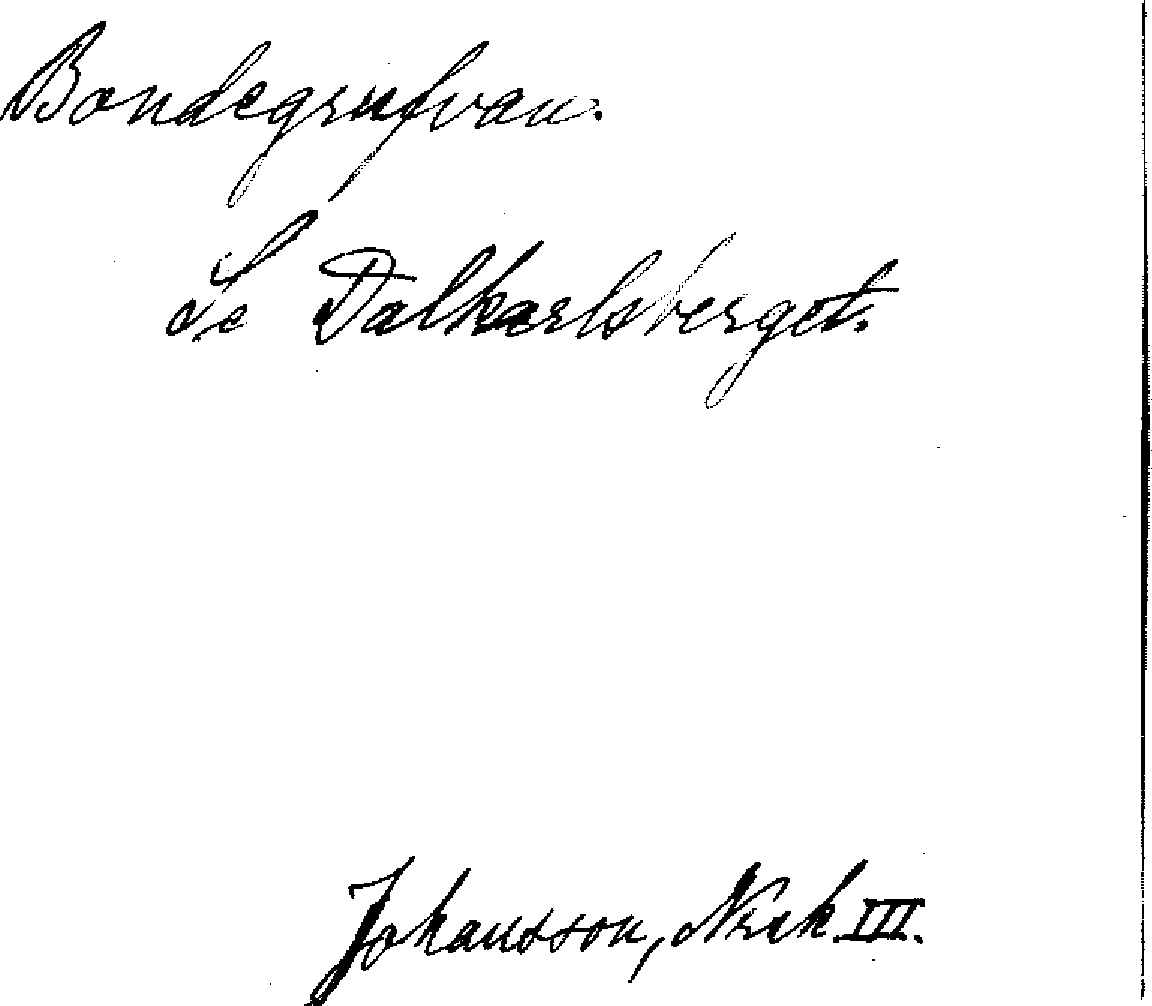 Bondegrufvan.
Se Dalkarlsberget.
Johansson, Nrik III.